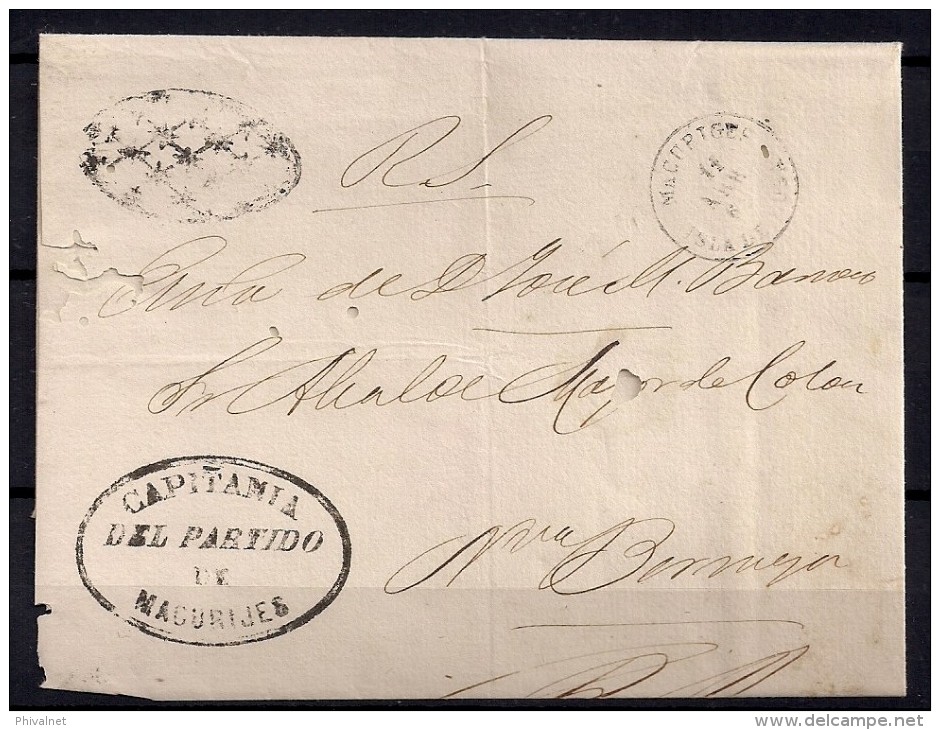 R. S.
MACURIGES ISLA DE CUBA
de D José M.
Sr Alcalde Mayor de Colon
CAPITANIA
DEL PARTIDO
DE
MACURIJES
Nva Bermeja
Phivalnet
www.delcampe.net